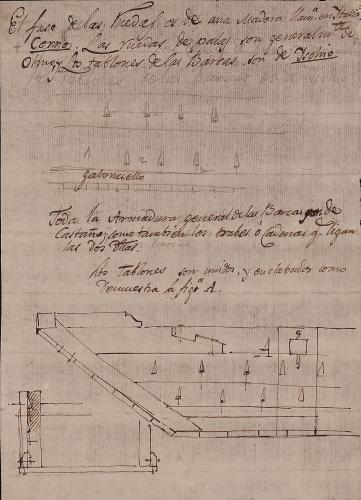 El fuso de las Ruedas es de una Madera llam.ª en Italia
Cerro, Las ruedas de palas son generalm.te de
Olmo, y Los tablones de las Barcas son de Ischio
2
gaboncello
Toda la Armadura general de las Barcas son de
Castaño; como también los trabes o Cadenas q.e ligan
las dos
Los tablones son unidos, y enclabados como
Demuestra la fig.ª A.
A